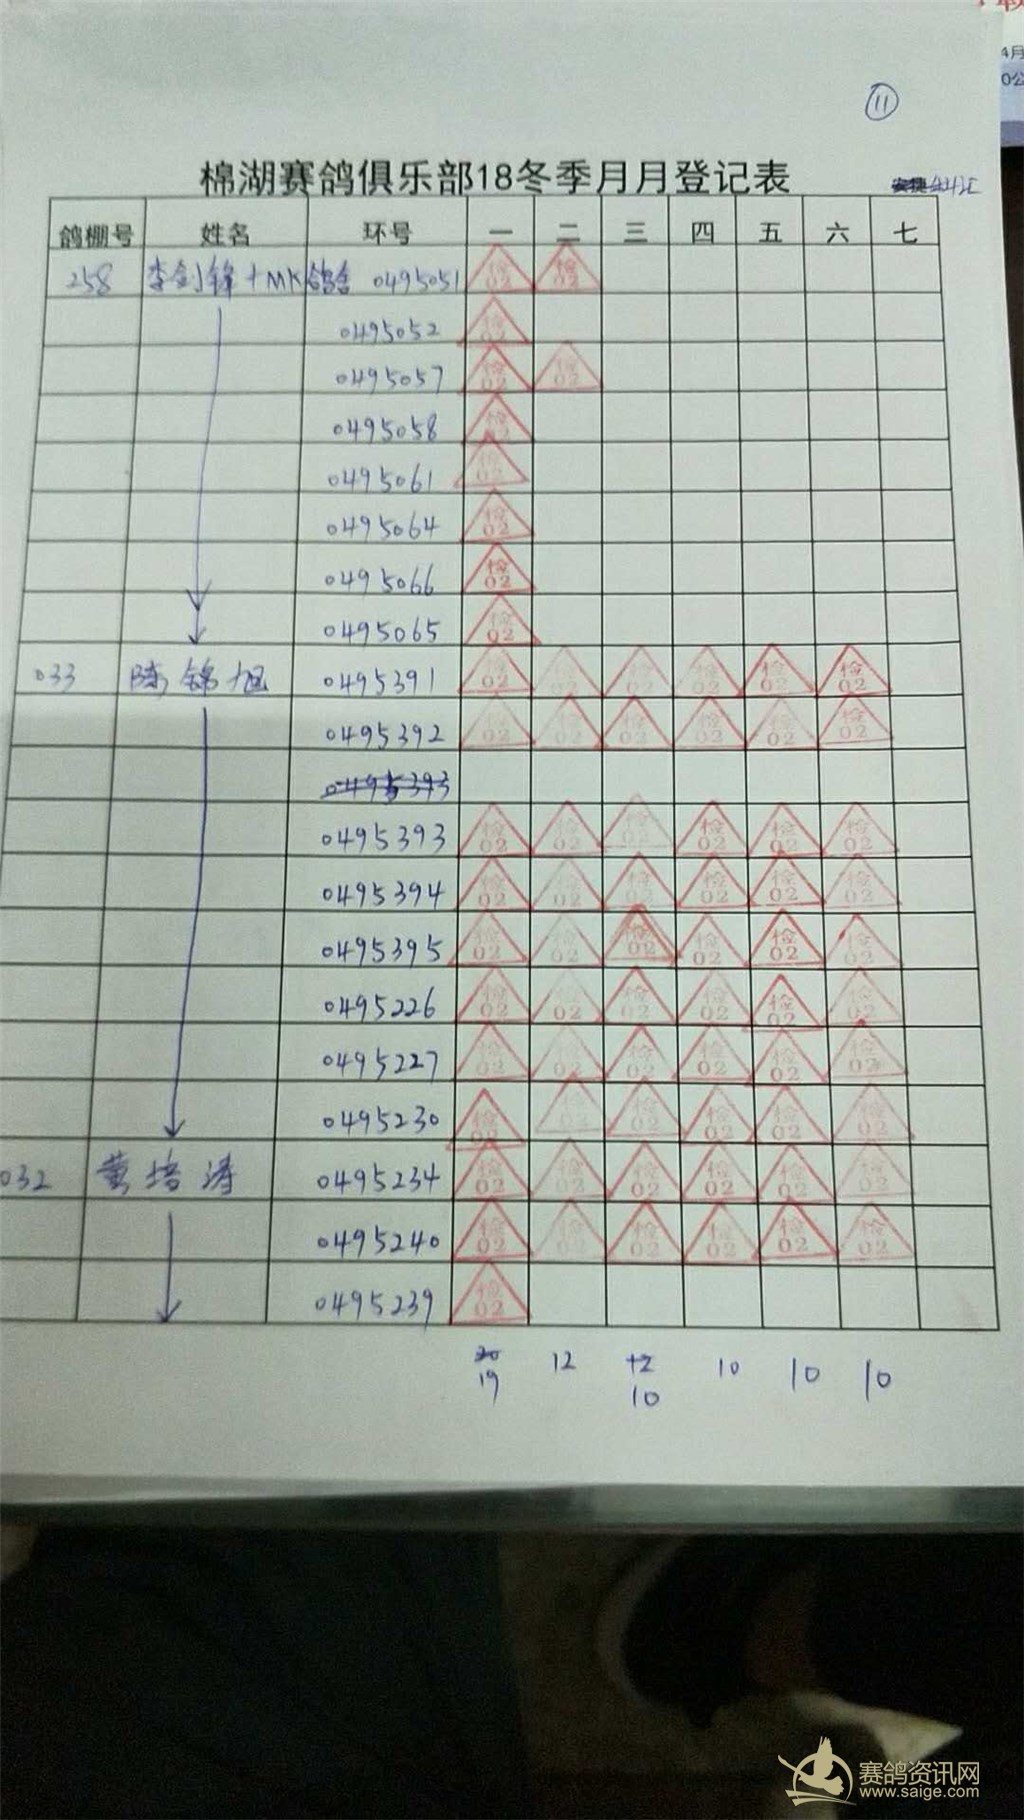 4月
0公
11
棉湖赛鸽俱乐部18冬季月月登记表
鸽棚号 姓名 环号 一 二 三 四 五 六 七
258 李剑锋+MK鸽舍 0495051 检02 检02
0495052 检02
0495057 检02 检02
0495058 检02
0495061 检02
0495064 检02
0495066 检02
0495065 检02
033 陈锦旭 0495391 检02 检02 检02 检02 检02 检02
0495392 检02 检02 检02 检02 检02 检02
0495393
0495393 检02 检02 检02 检02 检02 检02
0495394 检02 检02 检02 检02 检02 检02
0495395 检02 检02 检02 检02 检02 检02
0495226 检02 检02 检02 检02 检02 检02
0495227 检02 检02 检02 检02 检02 检02
0495230 检02 检02 检02 检02 检02 检02
032 黄培涛 0495234 检02 检02 检02 检02 检02 检02
0495240 检02 检02 检02 检02 检02 检02
0495239 检02
20 12 12 10 10 10
19 10
赛鸽资讯网
www.saige.com